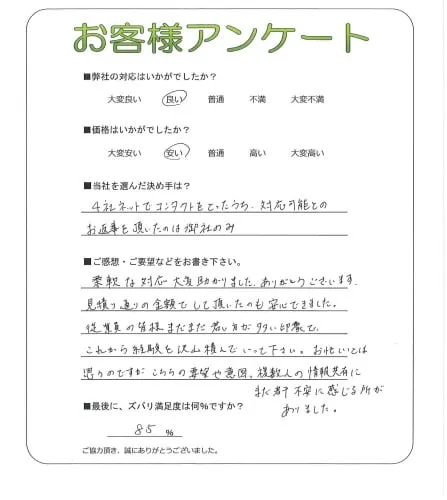 お客様アンケート
■弊社の対応はいかがでしたか？
大変良い 良い 普通 不満 大変不満
■価格はいかがでしたか？
大変安い 安い 普通 高い 大変高い
■当社を選んだ決め手は？
4社ネットでコンタクトをとったうち、対応可能との
お返事を頂いたのは御社のみ
■ご感想・ご要望などをお書き下さい。
柔軟な対応大変助かりました。ありがとうございます。
見積り通りの金額でして頂いたのも安心できました。
従業員の皆様まだまだ若い方が多い印象で、
これから経験を沢山積んでいって下さい。お忙しいとは
思うのですが こちらの要望や意図、複数人の情報共有に
まだ若干不安に感じる所が
ありました。
■最後に、ズバリ満足度は何%ですか？
85 %
ご協力頂き、誠にありがとうございました。